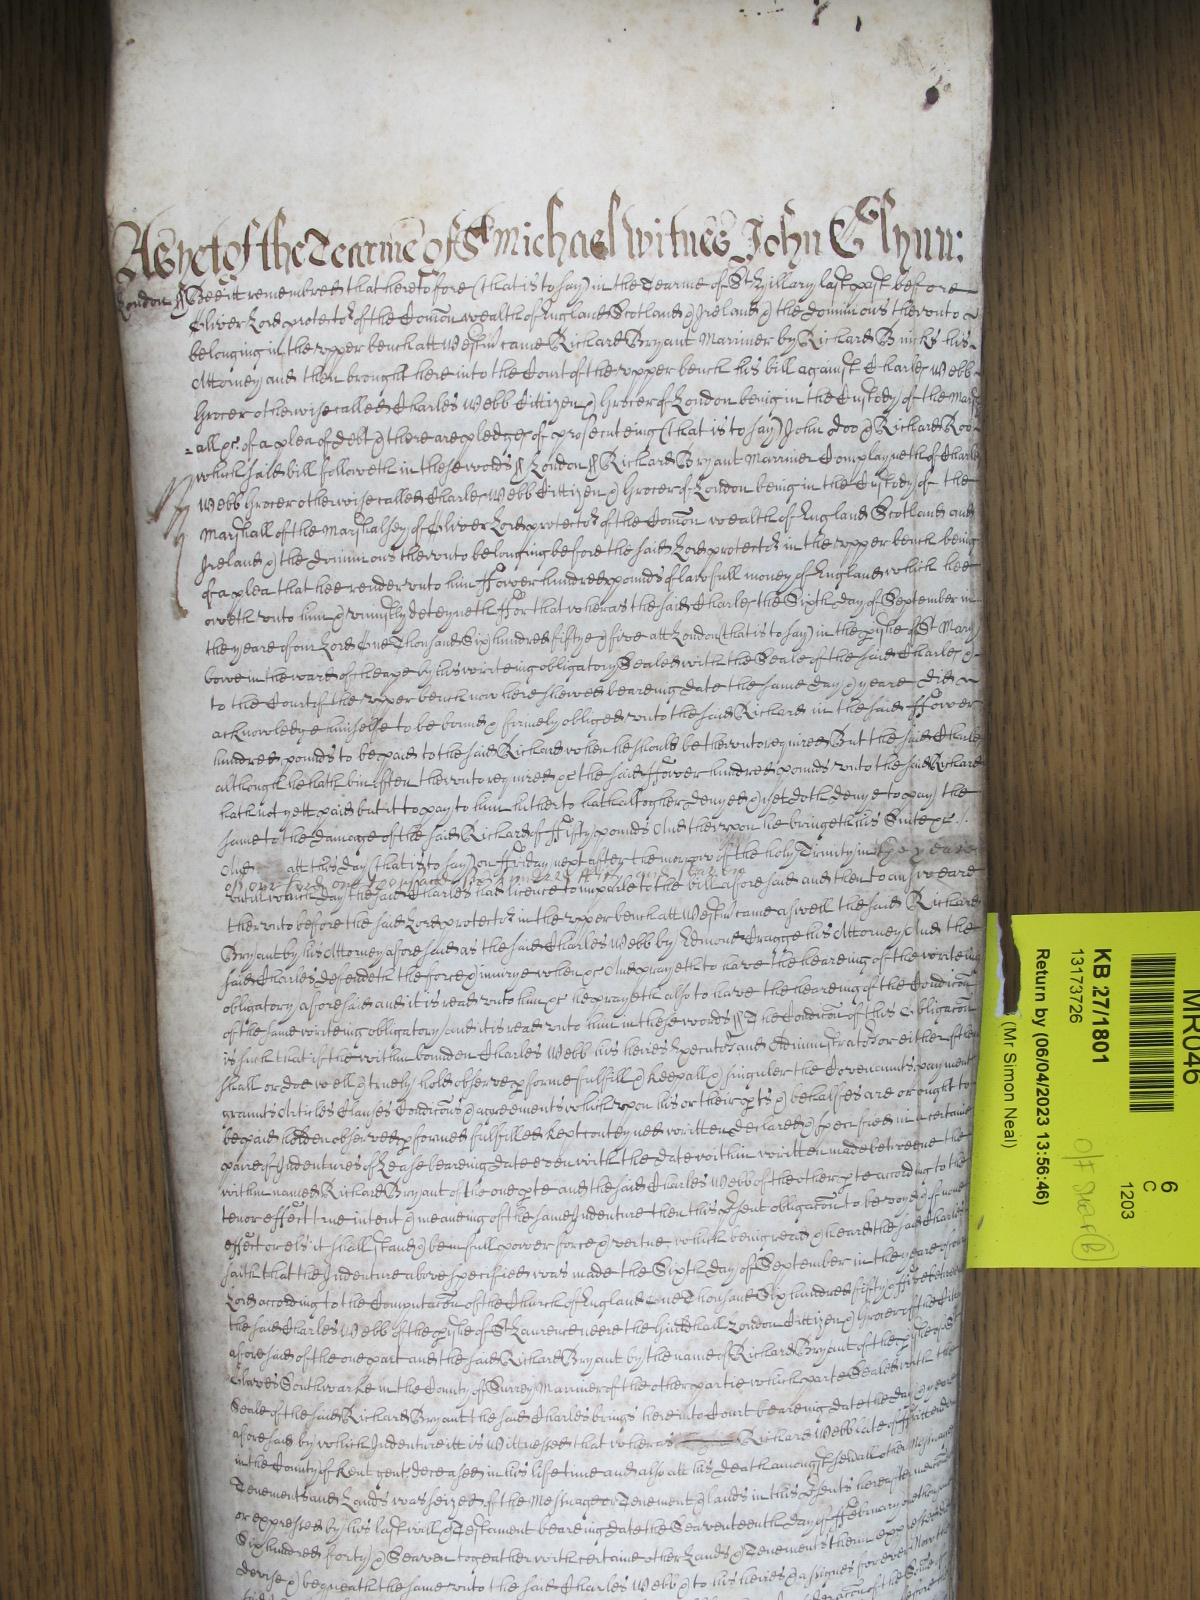 As yet of the Tearme of St Michael Witnes John Glynn:
London ss Bee itt remembred that heretofore (that is to say) in the Tearme of St Hillary last past before
Oliver Lord protector of the Comon wealth of England Scotland & Ireland & the dominions therunto
belonging in the upper bench att Westm came Richard Bryant Marriner by Richard his
Attorney and then brought here into the Court of the upper bench his bill against Charles Webb
Grocer otherwise called Charles Webb Cittizen & Grocer of London being in the Custody of the Marsh
all &c of a plea of debt & there are pledges of prosecuteing (that is to say) John Doo & Richard Roo
which said bill followeth in these words ss London ss Richard Bryant Marriner Complayneth of Charles
Webb Grocer otherwise called Charles Webb Cittizen & Grocer of London being in the Custody of the
Marshall of the Marshalsey of Oliver Lord protector of the Comon wealth of England Scotland and
Ireland & the dominions therunto belonging before the said Lord protector in the upper bench being
of a plea that hee render unto him ffower hundred pounds of lawfull money of England which hee
oweth unto him & uniustly deteyneth ffor that wheras the said Charles the Sixth day of September in
the yeare of our Lord One Thousand Six hundred fiftye & five att London (that is to say) in the pishe of St Mary
bowe in the ward of cheape by his writeing obligatory Sealed with the Seale of the said Charles &
to the Court of the upper bench now here shewed beareing date the same day & yeare did
acknowledge himselfe to be bound & firmely obliged unto the said Richard in the said ffower
hundred pounds to be paid to the said Richard when he should be therunto required But the said Charles
although he hath bin often therunto required &c the said ffower hundred pounds unto the said Richard
hath not yett paid but it to pay to him hitherto hath altogher denyed & yet doth denye to pay the
same to the damage of the said Richard of ffifty pounds And therupon he bringeth his Suite &c.
And att this day (that is to say) on ffriday next after the morrow of the holy Trinity in the yeare
of our Lord one thousand six hundred fifty and
untill which day the said Charles had licence to imparle to the bill aforesaid and then to answeare
therunto before the said Lord protector in the upper bench att Westm came aswell the said Richard
Bryant by his Attorney aforesaid as the said Charles Webb by Edmond Cragge his Attorney And the
said Charles defendeth the force & iniurye when &c And prayeth to have the heareing of the writeing
obligatory aforesaid and it is read unto him &c he prayeth also to have the heareing of the Condicon
of the same writeing obligatory and it is read unto him in these words ss The Condicon of this Obligacon
is such that if the within bounden Charles Webb his heires Executors and Administrators or either of them
shall or doe well & truely hold observe pforme fulfill & keep all & singuler the Covenaunts payments
graunts Articles Clauses Condicons & agreements which upon his or their pts & behalfes are or ought to
be paid holden observed pformed fulfilled & kept conteyned written declared & specified in a certaine
paire of Indentures of Lease beareing date even with the date within written made betweene the
within named Richard Bryant of the one pte and the said Charles Webb of the other pte according to the
tenor effect true intent & meaneing of the same Indenture then this psent obligacon to be voyd & of none
effect or els it shall stand & be in full power force & vertue, which being read & heard the said Charles
saith that the Indenture above specified was made the Sixth day of September in the yeare of our
Lord according to the Computacon of the Church of England one Thousand Six hundred fifty & five betweene
the said Charles Webb of the pishe of St Laurence neere the Guildhall London Cittizen & Grocer of the Citty
aforesaid of the one part and the said Richard Bryant by the name of Richard Bryant of the pishe of St
Olaves Southwarke in the County of Surrey Marriner of the other partie which parte Sealed with the
Seale of the said Richard Bryant the said Charles brings here into Court beareing date the day & yeare
aforesaid by which Indenture itt is Witnessed that wheras Richard Webb late of
in the County of Kent gent deceased in his life time and also att his death amongst
Tenements and Lands was seized of the Messuage or Tenement & lands in this psents hereafter menconed
or expressed by his last will & Testament beareing date the Seaventeenth day of ffebruary one thousand
Six hundred forty & Seaven togeather with certaine other Lands & Tenements therin expressed
devise & bequeath the same unto the said Charles Webb & to his heires & assignes for ever
MR046
6
C
1203
KB 27/1801
13173726
Return by (06/04/2023 13:56:46)
(Mr Simon Neal)